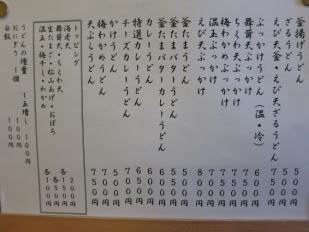 釜揚げうどん 500円
ざるうどん 500円
えび天釜・えび天ざるうどん 750円
ぶっかけうどん(温・冷) 600円
舞茸天ぶっかけ
ちくわ天ぶっかけ
梅わかめぶっかけ 700円
温玉ぶっかけ 700円
えび天ぶっかけ 800円
釜たまうどん 550円
釜たまバターうどん 600円
釜たまバターカレーうどん
カレーうどん 600円
特選カレーうどん
チーズカレーうどん 700円
かけうどん 500円
梅わかめうどん
天ぷらうどん 750円
トッピング
海老天 200円
舞茸天・ちくわ天 各150円
生たまご・松山あげ・おぼろ 各50円
温玉・梅干し・わかめ 各100円
うどんの増量 1玉増し 100円
おにぎり 1個 100円
白飯 100円